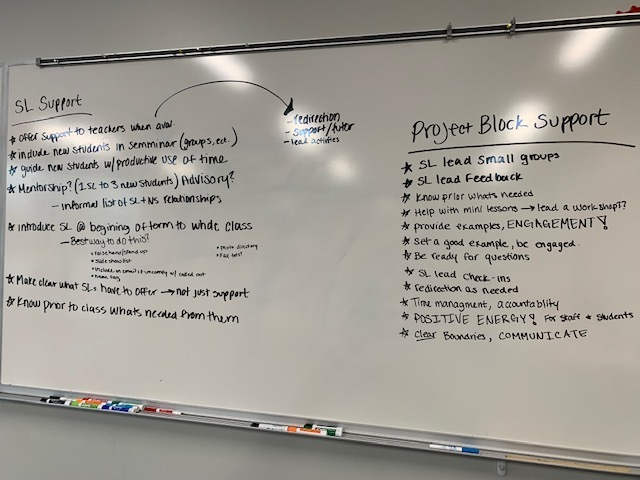 SL Support
* offer support to teachers when avai.
* include new students in semminar (groups, ect.)
* guide new students w/ productive use of time
* Mentorship? (1 SL to 3 new students) Advisory?
– informal list of SL + NS relationships
* introduce SL @ begining of term to whole class
– Best way to do this?
• raise hand/stand up
• slide show list
• include in email if uncomfy w/ called out
• name tag
• photo directory
• Fun fact?
* Make clear what SLs have to offer → not just support
* Know prior to class whats needed from them
– redirection
– support/tutor
– lead activities
Project Block Support
* SL lead small groups
* SL lead Feedback
* Know prior whats needed
* Help with mini lessons → lead a workshop??
* provide examples, ENGAGEMENT!
* Set a good example, be engaged.
* Be ready for questions
* SL lead check-ins
* redirection as needed
* Time managment, accountablity
* POSITIVE ENERGY! For staff + students
* Clear Boundries, COMMUNICATE